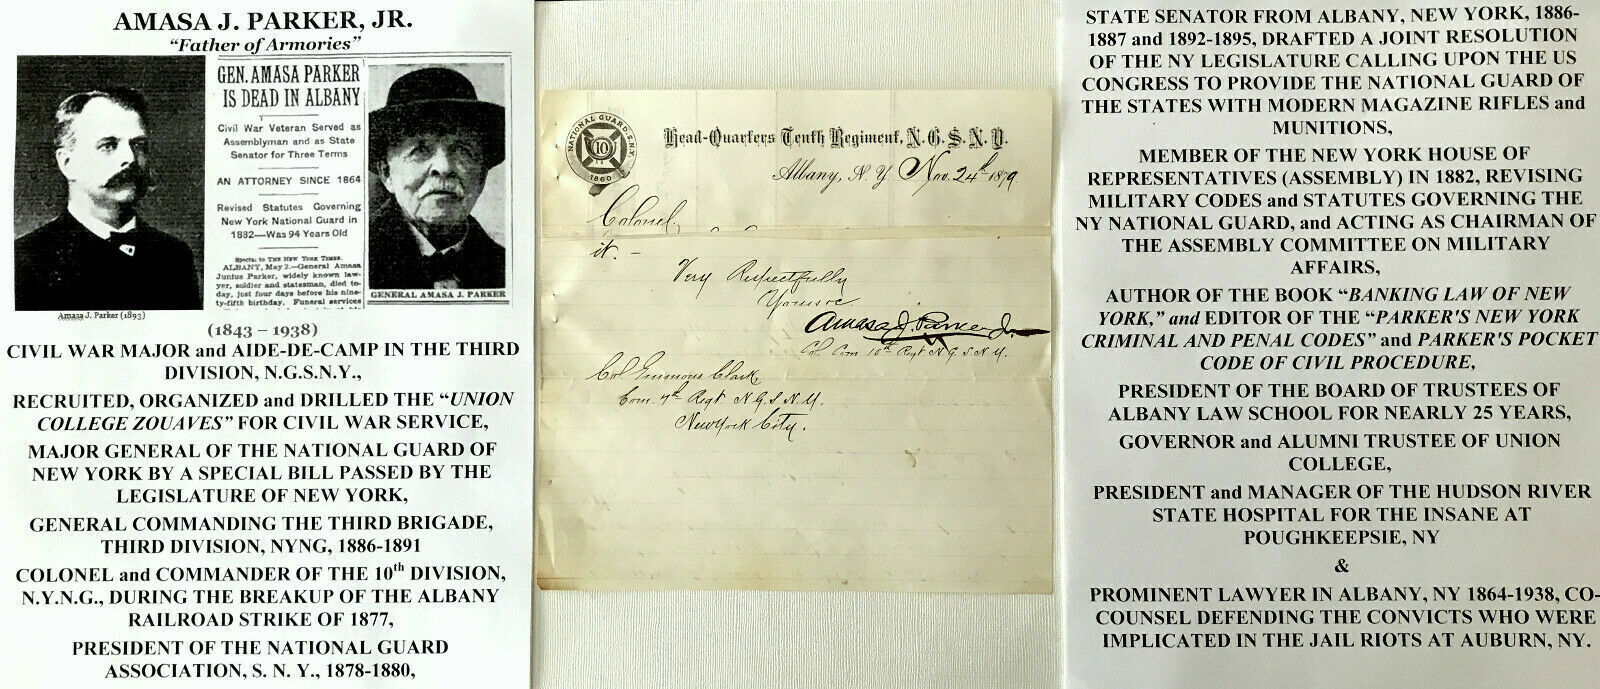 AMASA J. PARKER, JR.
“Father of Armories”
GEN. AMASA PARKER
IS DEAD IN ALBANY
Civil War Veteran Served as
Assemblyman and as State
Senator for Three Terms
AN ATTORNEY SINCE 1864
Revised Statutes Governing
New York National Guard in
1882—Was 94 Years Old
Special to THE NEW YORK TIMES.
ALBANY, May 2.—General Amasa
Junius Parker, widely known law-
yer, soldier and statesman, died to-
day, just four days before his nine-
ty-fifth birthday. Funeral services
GENERAL AMASA J. PARKER
Amasa J. Parker (1893)
(1843 – 1938)
CIVIL WAR MAJOR and AIDE-DE-CAMP IN THE THIRD
DIVISION, N.G.S.N.Y.,
RECRUITED, ORGANIZED and DRILLED THE “UNION
COLLEGE ZOUAVES” FOR CIVIL WAR SERVICE,
MAJOR GENERAL OF THE NATIONAL GUARD OF
NEW YORK BY A SPECIAL BILL PASSED BY THE
LEGISLATURE OF NEW YORK,
GENERAL COMMANDING THE THIRD BRIGADE,
THIRD DIVISION, NYNG, 1886-1891
COLONEL and COMMANDER OF THE 10th DIVISION,
N.Y.N.G., DURING THE BREAKUP OF THE ALBANY
RAILROAD STRIKE OF 1877,
PRESIDENT OF THE NATIONAL GUARD
ASSOCIATION, S. N. Y., 1878-1880,
NATIONAL GUARD S.N.Y.
10
1860
Head-Quarters Tenth Regiment, N.G.S.N.Y.
Albany, N.Y. Nov. 24th 1879
Colonel,
it. –
Very Respectfully
Yours &c
Amasa J. Parker Jr.
Col Com 10th Regt N.G.S.N.Y.
Col Emmons Clark,
Com. 7th Regt N.G.S.N.Y.
New York City.
STATE SENATOR FROM ALBANY, NEW YORK, 1886-
1887 and 1892-1895, DRAFTED A JOINT RESOLUTION
OF THE NY LEGISLATURE CALLING UPON THE US
CONGRESS TO PROVIDE THE NATIONAL GUARD OF
THE STATES WITH MODERN MAGAZINE RIFLES and
MUNITIONS,
MEMBER OF THE NEW YORK HOUSE OF
REPRESENTATIVES (ASSEMBLY) IN 1882, REVISING
MILITARY CODES and STATUTES GOVERNING THE
NY NATIONAL GUARD, and ACTING AS CHAIRMAN OF
THE ASSEMBLY COMMITTEE ON MILITARY
AFFAIRS,
AUTHOR OF THE BOOK “BANKING LAW OF NEW
YORK,” and EDITOR OF THE “PARKER'S NEW YORK
CRIMINAL AND PENAL CODES” and PARKER'S POCKET
CODE OF CIVIL PROCEDURE,
PRESIDENT OF THE BOARD OF TRUSTEES OF
ALBANY LAW SCHOOL FOR NEARLY 25 YEARS,
GOVERNOR and ALUMNI TRUSTEE OF UNION
COLLEGE,
PRESIDENT and MANAGER OF THE HUDSON RIVER
STATE HOSPITAL FOR THE INSANE AT
POUGHKEEPSIE, NY
&
PROMINENT LAWYER IN ALBANY, NY 1864-1938, CO-
COUNSEL DEFENDING THE CONVICTS WHO WERE
IMPLICATED IN THE JAIL RIOTS AT AUBURN, NY.